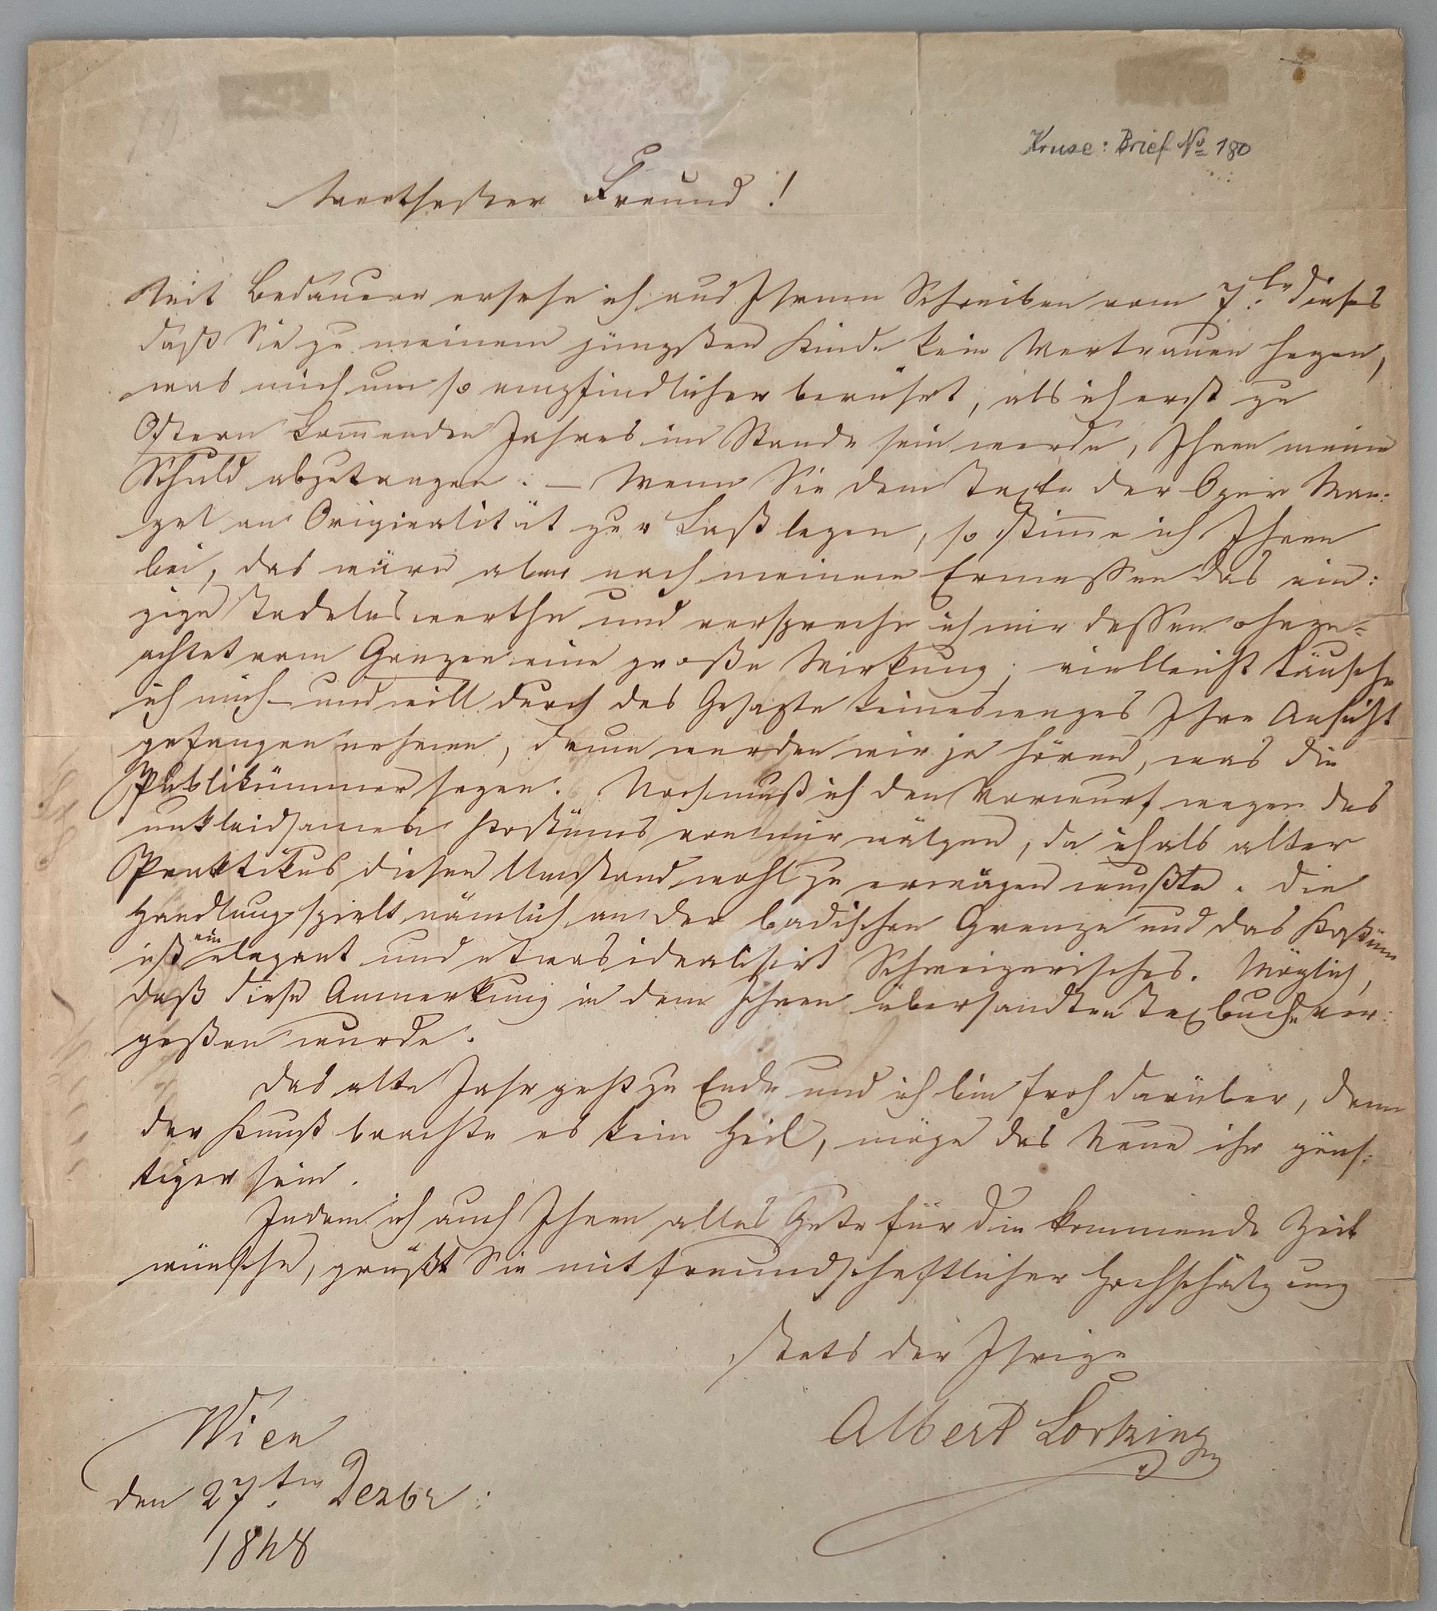 Kruse: Brief No 180
Werthester Freund!
Mit Bedauern ersehe ich aus Ihrem Schreiben vom 7ten dieses
daß Sie zu meinem jüngsten Kinde kein Vertrauen hegen,
was mich um so empfindlicher berührt, als ich erst zu
Ostern kommenden Jahres im Stande sein werde, Ihnen meine
Schuld abzutragen. — Wenn Sie dem Texte der Oper Man:
gel an Originalität zur Last legen, so stimme ich Ihnen
bei, das wäre aber nach meinem Ermessen das ein:
zige Tadelnswerthe und verspreche ich mir dessen ohnge=
achtet vom Ganzen eine große Wirkung; vielleicht täusche
ich mich – und will durch das Gesagte keinesweges Ihre Ansicht
gefangen nehmen, denn werden wir ja hören, was die
Publikümmer sagen. Noch muß ich den Vorwurf wegen des
unkleidsamen Kostüms von mir wälzen, da ich als alter
Praktikus diesen Umstand wohl zu erwägen wußte. Die
Handlung spielt nämlich an der badischen Grenze und das Kostüm
ist ein elegant und etwas idealisirt Schweizerisches. Möglich,
daß diese Anmerkung in dem Ihnen übersandten Texbuche ver:
geßen wurde.
Das alte Jahr geht zu Ende und ich bin froh darüber, denn
der Kunst brachte es kein Heil, möge das Neue ihr güns:
tiger sein.
Indem ich auch Ihnen alles Gute für die kommende Zeit
wünsche, grüßt Sie mit freundschaftlicher Hochschätzung
stets der Ihrige
Albert Lortzing
Wien
den 27ten Dezbr:
1848